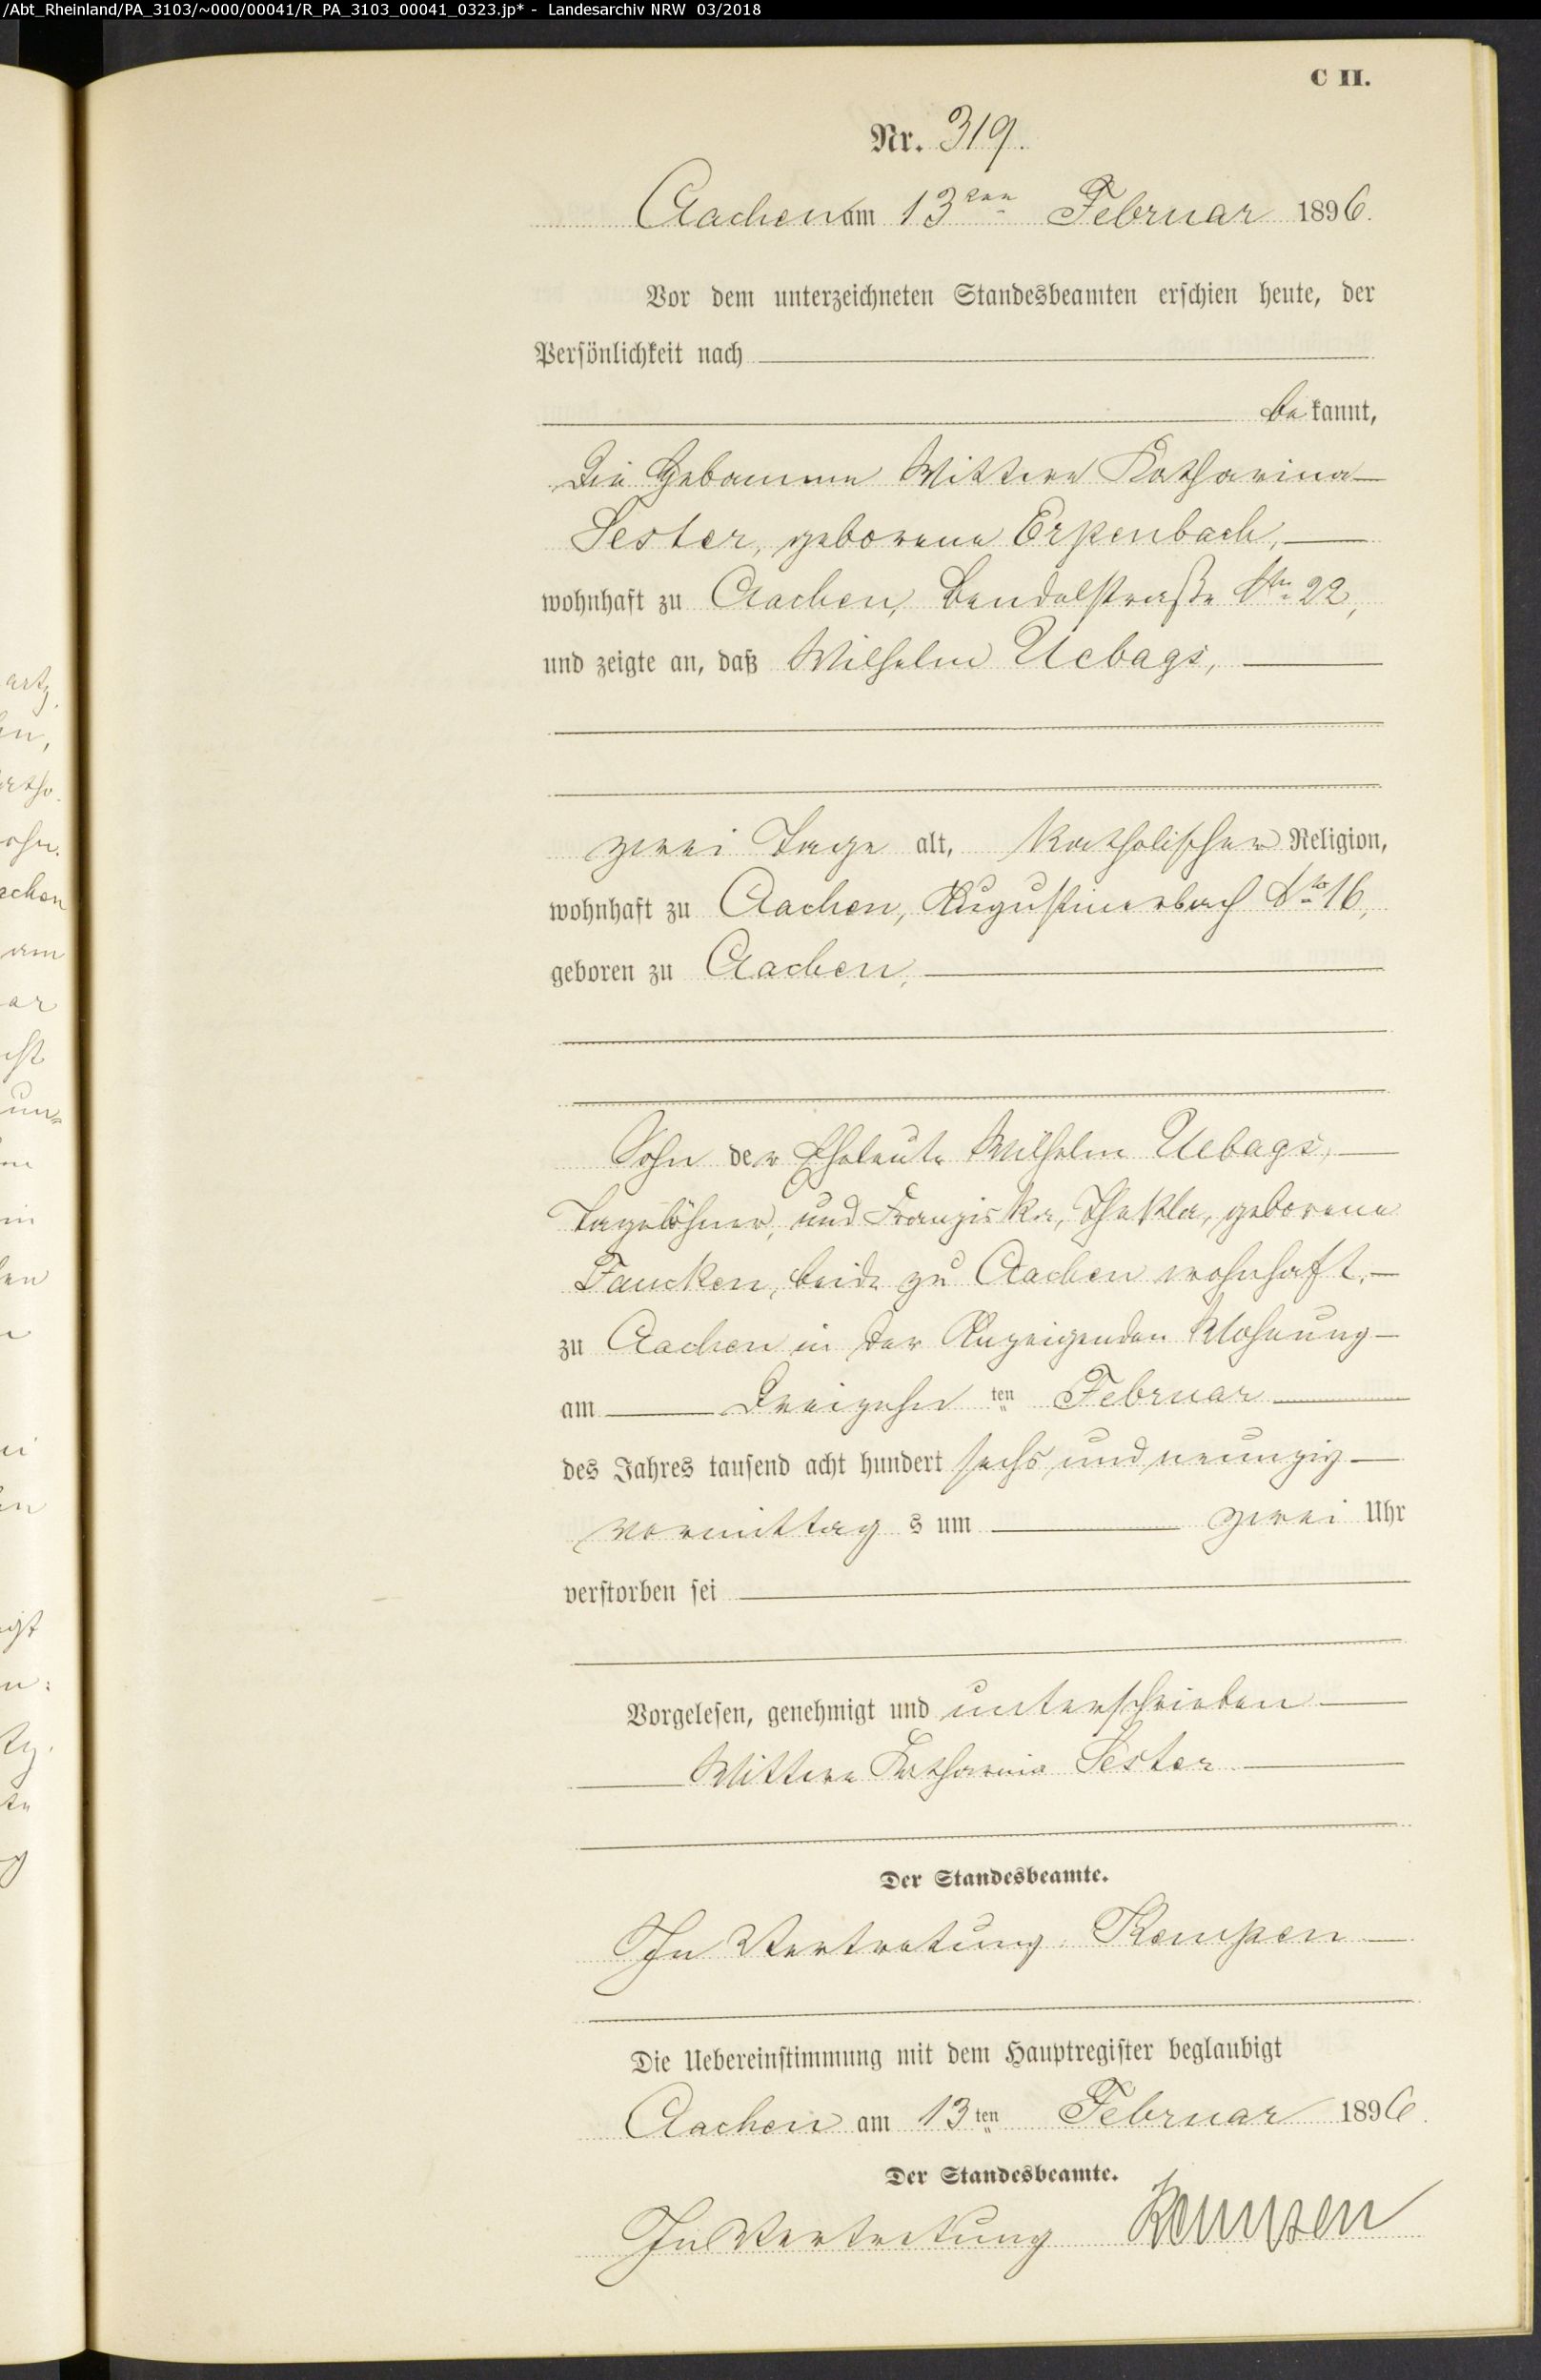 /Abt_Rheinland/PA_3103/~000/00041/R_PA_3103_00041_0323.jp* - Landesarchiv NRW 03/2018
C II.
Nr. 319.
Aachen am 13ten Februar 1896.
Vor dem unterzeichneten Standesbeamten erschien heute, der
Persönlichkeit nach
bekannt,
die Hebamme Wittwe Katharina
Sester, geborene Erpenbach,
wohnhaft zu Aachen, Bendelstraße No 22,
und zeigte an, daß Wilhelm Uebags,
zwei Tage alt, katholischer Religion,
wohnhaft zu Aachen, Augustinerbach No 16,
geboren zu Aachen,
Sohn der Eheleute Wilhelm Uebags,
Tagelöhner, und Franziska, Thekla, geborene
Faucken, beide zu Aachen wohnhaft,
zu Aachen in der Anzeigenden Wohnung
am Dreizehn ten Februar
des Jahres tausend acht hundert sechs und neunzig
Vormittag s um zwei Uhr
verstorben sei
Vorgelesen, genehmigt und unterschrieben
Wittwe Katharina Sester
Der Standesbeamte.
In Vertretung. Kempen
Die Uebereinstimmung mit dem Hauptregister beglaubigt
Aachen am 13 ten Februar 1896.
Der Standesbeamte.
In Vertretung Kempen
artz.
ohn.
achen
am
ar